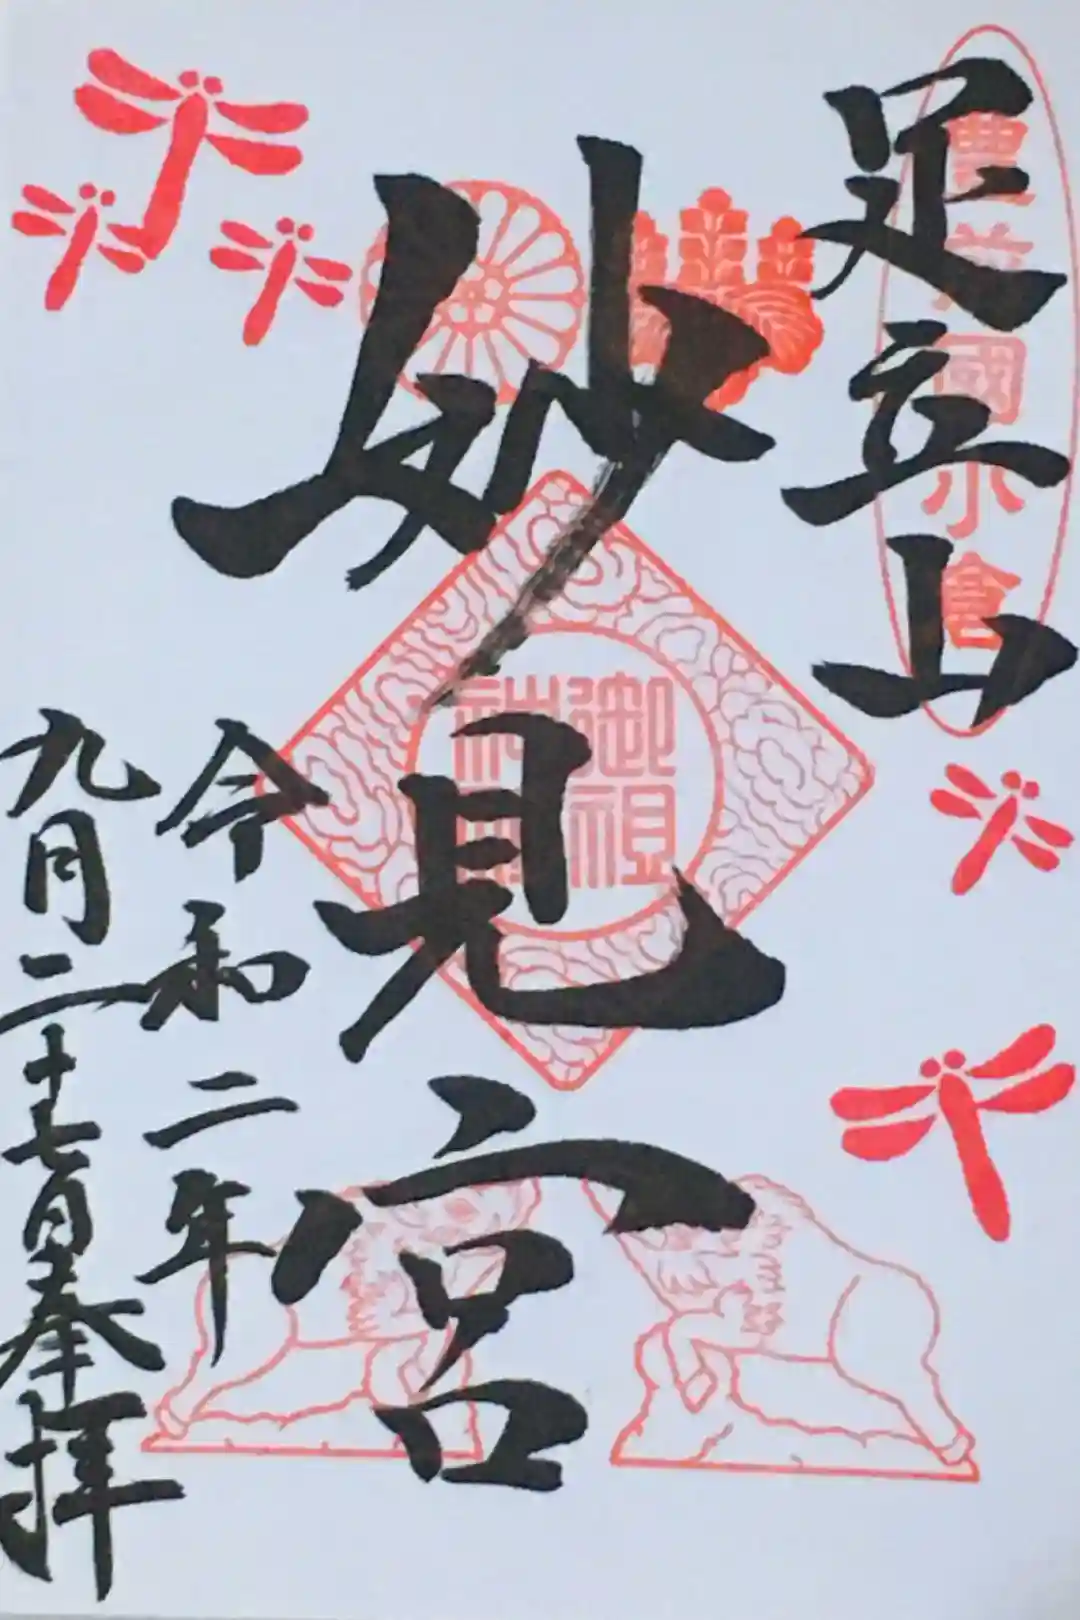 足立山
豊前國小倉
妙見宮
御祖
令和二年
九月二十七日奉拝